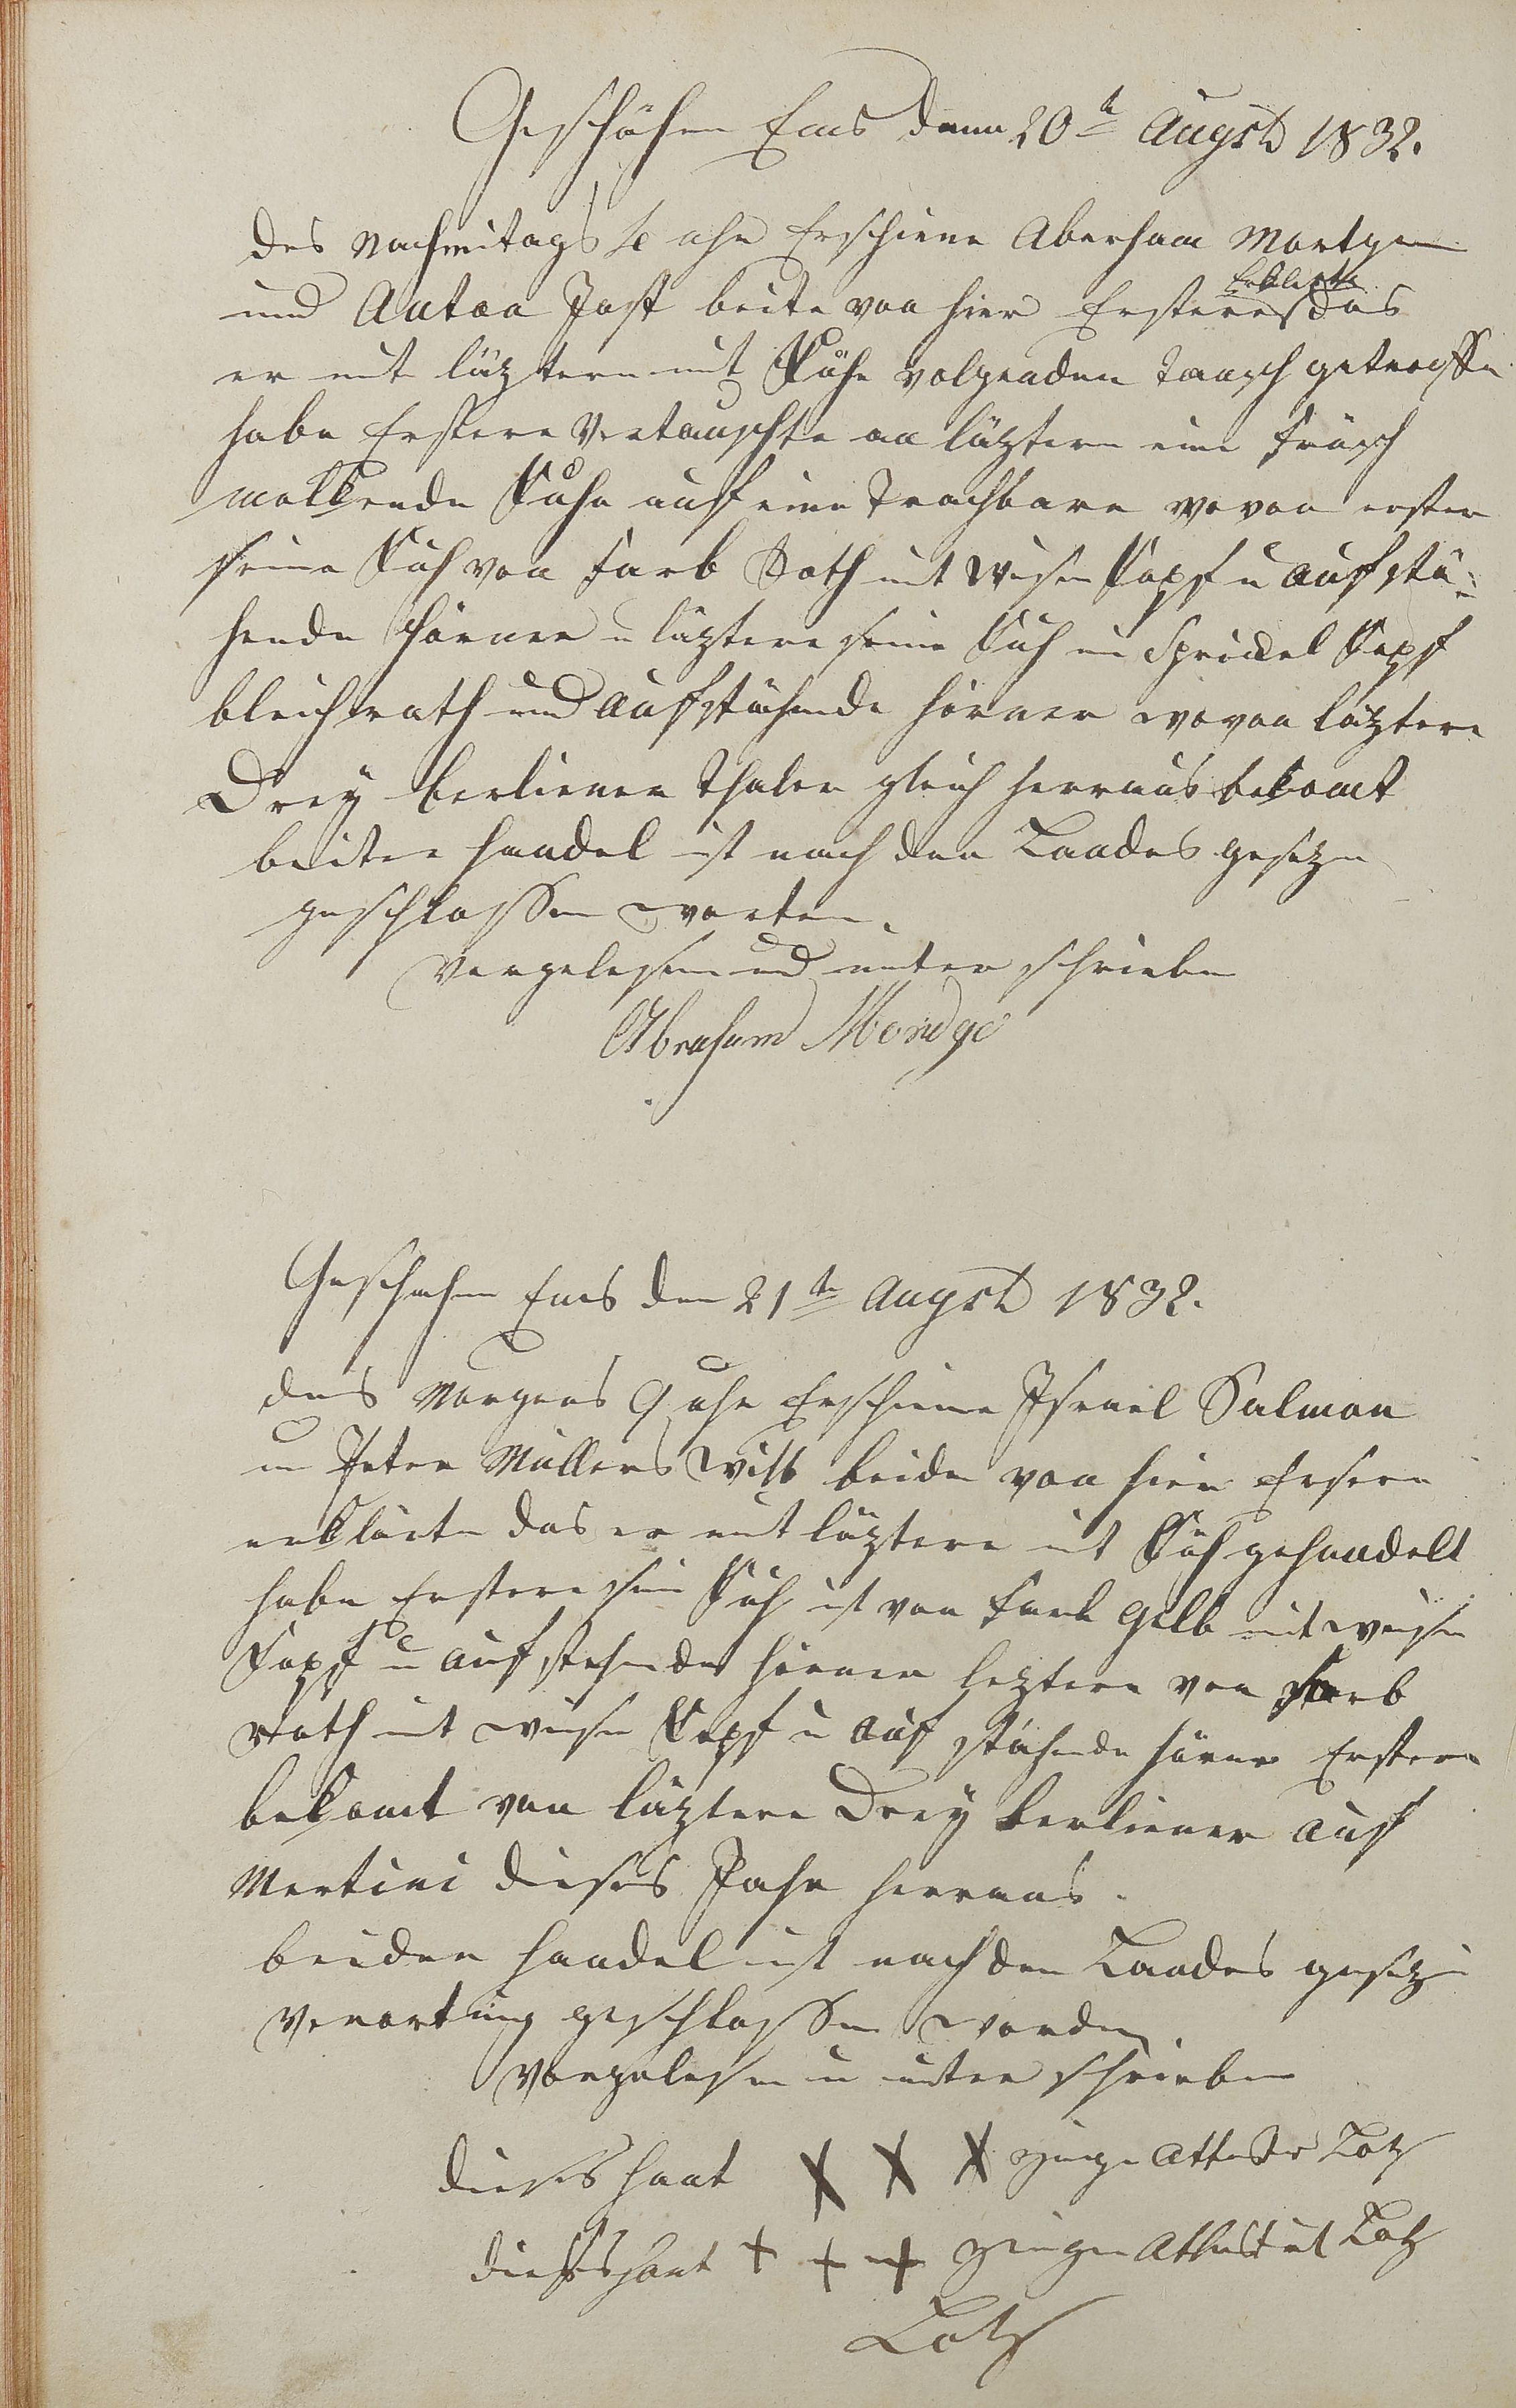 Geschähen Ems denn 20te Augst 1832.
des Nachmitags 4 uhr Erschiene Aberham Mortge
Erklerte
und Anton Jost beite von hier Erstere das
er mit läztern mit Kühe volgenden Tausch getroffe
habe Erstere Vertauschte an läztern eine früsch
melkende Kuhe auf eine Trachbare wovon erster
seine Kuh von Farb Roth mit weisen Kopf u aufstä-
hende Hörner u läztere seine Kuh ein Sprickel Kopf
bleichroth und aufstähende Hörner wovon läztere
Drey berliener Thaler gleich herraus bekomt
beiter Handel ist nach den Landes gesezen
geschlossen worten.
Vorgelesen und unter schrieben
Abraham Mordge
Geschehen Ems den 21te Augst 1832.
des Morgens 9 uhr Erschiene Israel Salmon
u Peter Müllers Wittb beide von hier Ersere
erklärte das er mit läztere mit Küh gehandelt
habe Erstere sein Kuh ist von Farb Gelb mit weisen
Kopf u aufstehender Hörner leztere von Farb
roth mit weisen Kopf u auf stähende Hörner Erstere
bekomt von läztere Drey berliener auf
Mertini dieses Jahr herraus.
beider Handel ist nach den Landes gesez
verortnug geschlossen worden.
Vorgelesen u unter schrieben
Dieses Hant X X X zeuge Lotz
Dieses Hant + + + zeuge Lotz
Lotz